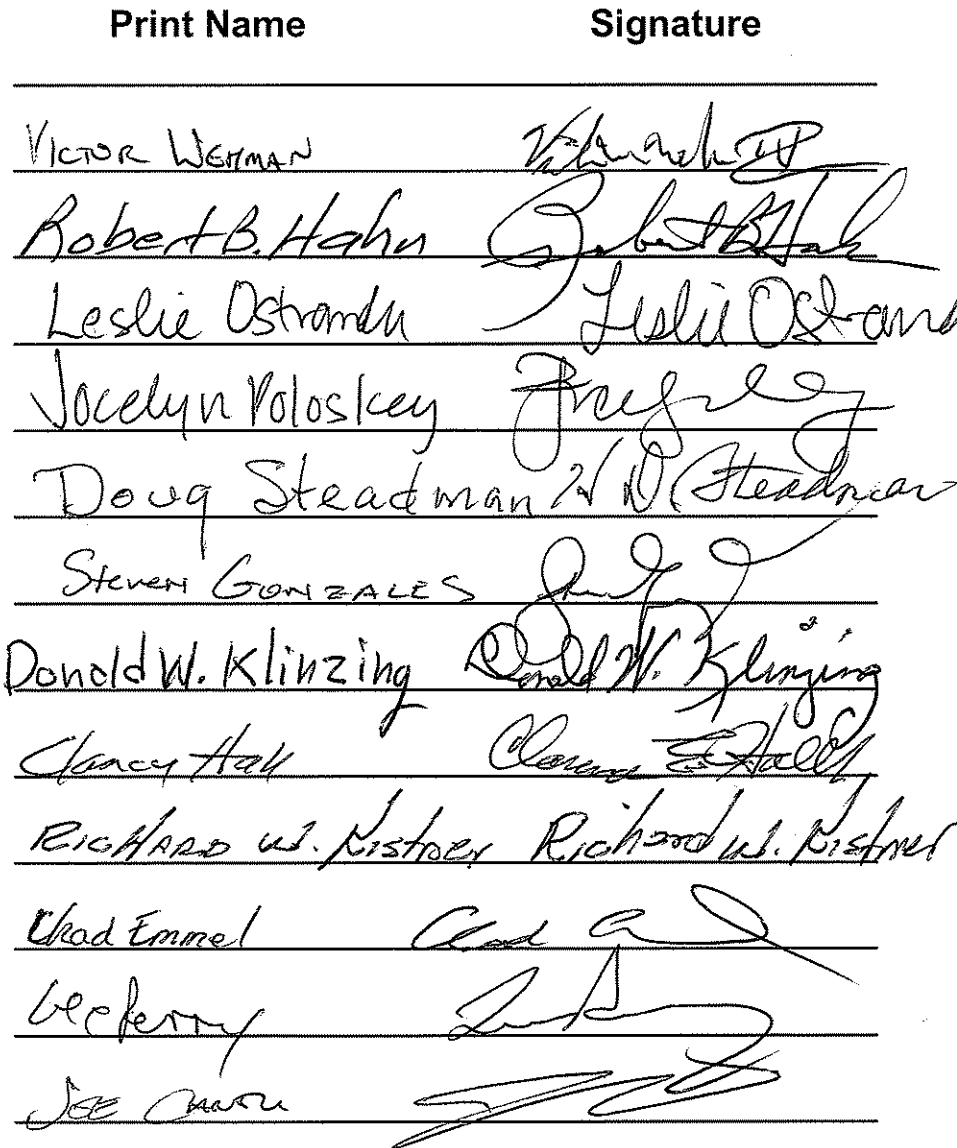 Print Name Signature
Victor Wehman
Robert B. Hahn Robert B Hah
Leslie Ostrander Leslie Ostrand
Jocelyn Poloskey
Doug Steadman H D Steadman
Steven Gonzales
Donald W. Klinzing Donald W. Klinzing
Clancy Hall Clarence E. Hall
Richard W. Kistner Richard W. Kistner
Chad Emmel Chad
Lee Perry
Joe